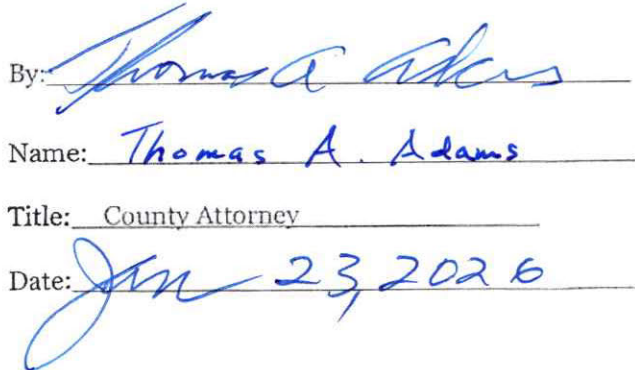 By: Thomas A Adams
Name: Thomas A. Adams
Title: County Attorney
Date: Jan 23, 2026